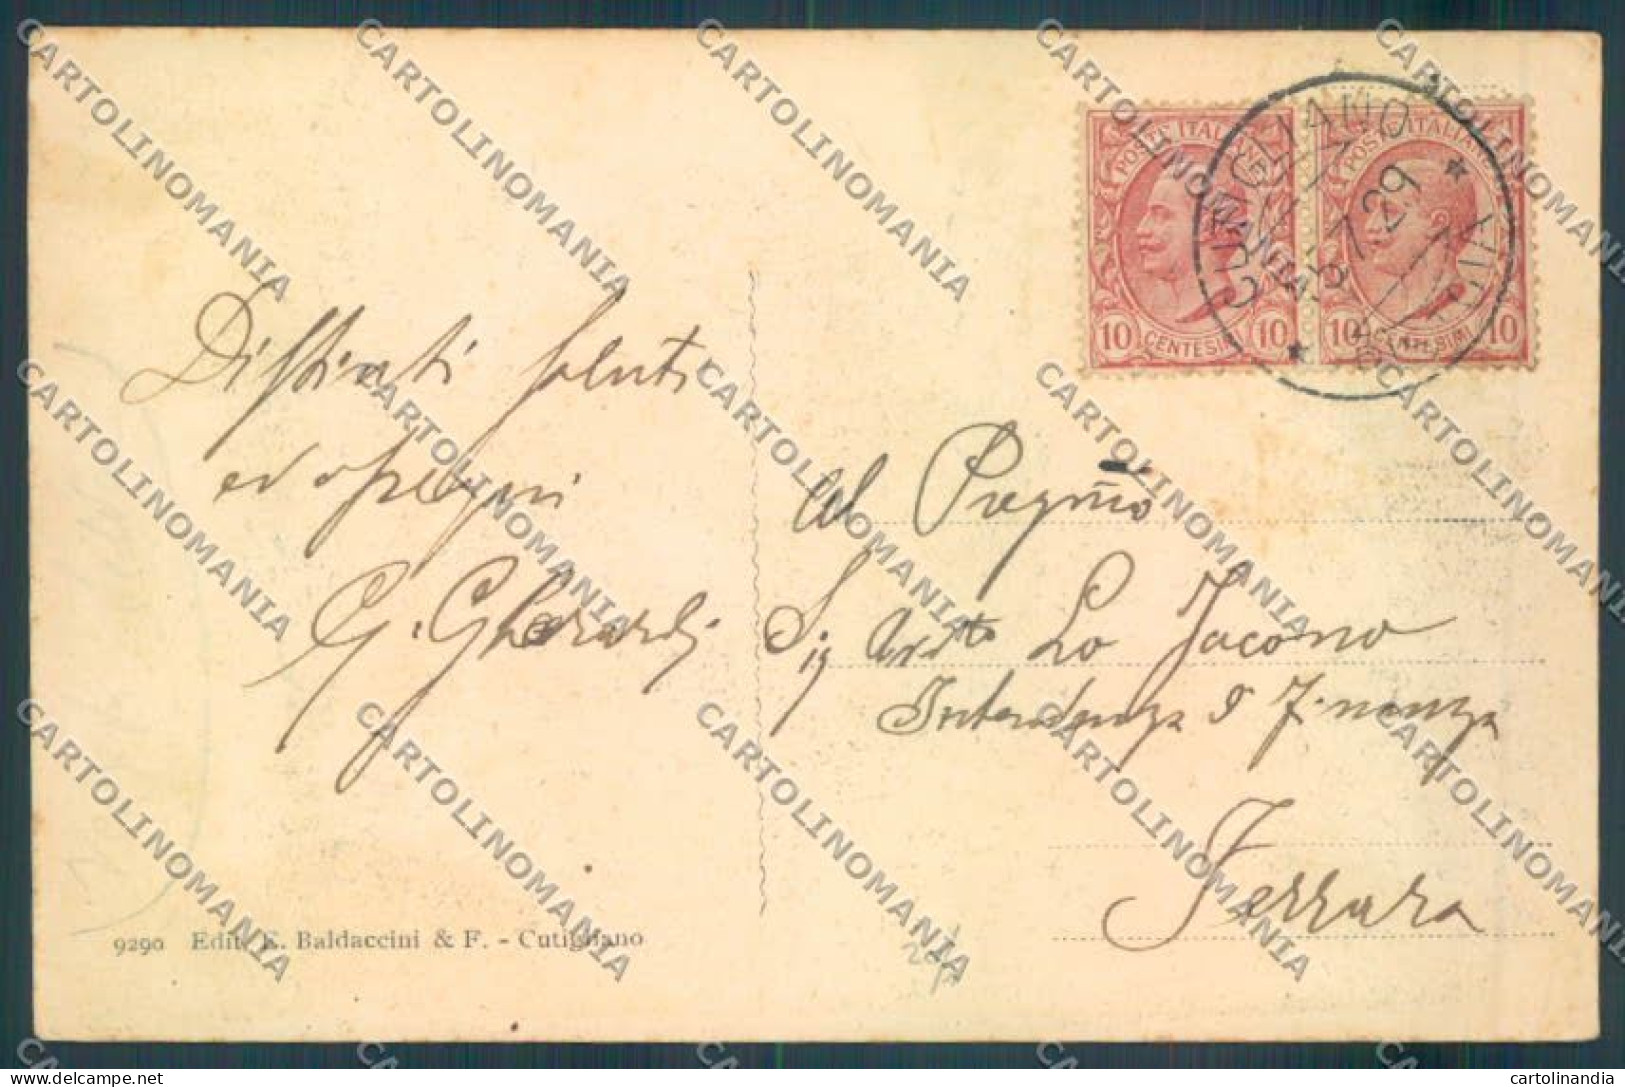 POSTE ITALIANE
10 CENTESIMI 10
POSTE ITALIANE
10 CENTESIMI 10
CUTIGLIANO
7.29
Distinti saluti
ed ossequi
G. Gherardi
Al Pregmo
Sig Lo Jacono
Intendenza d Finanza
Ferrara
9290 Edit. E. Baldaccini & F. - Cutigliano
CARTOLINOMANIA
delcampe.net
cartolinandia